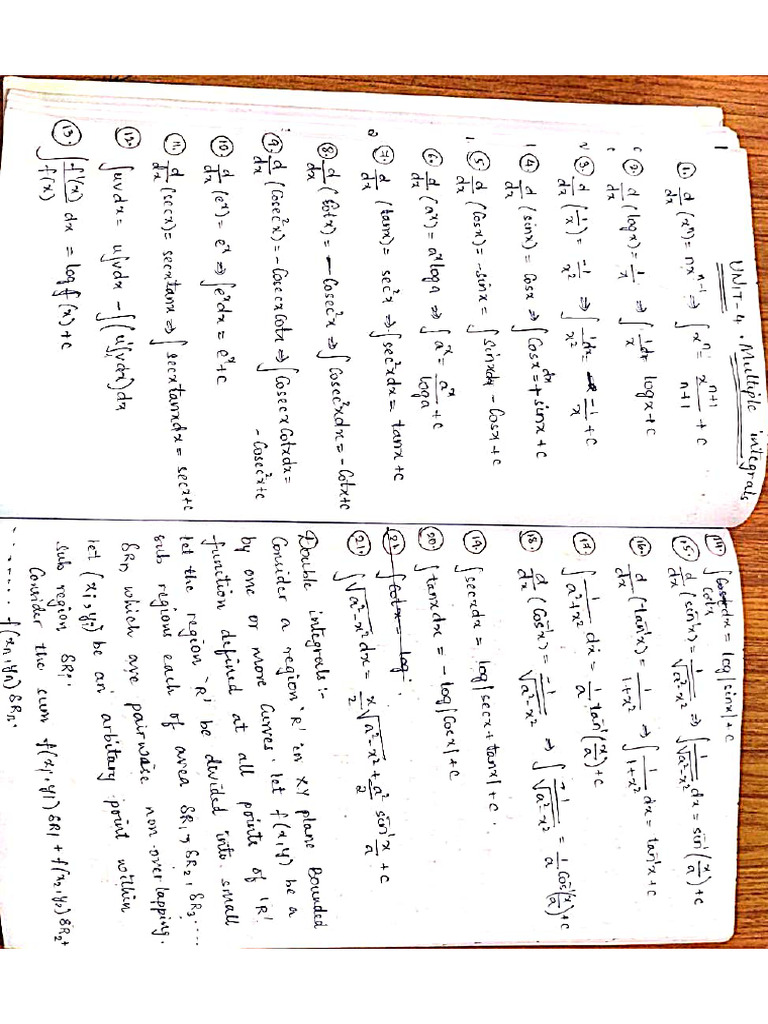 UNIT-4. Multiple integrals
1. d/dx (xⁿ) = nx^(n-1) ⇒ ∫xⁿ = x^(n+1)/(n+1) + c
2. d/dx (logx) = 1/x ⇒ ∫ 1/x dx logx+c
3. d/dx (1/x) = -1/x² ⇒ ∫ 1/x² dx = -1/x + c
4. d/dx (sinx) = Cosx ⇒ ∫Cosx dx = + sinx+c
5. d/dx (Cosx) = -sinx = ∫sinxdx - Cosx+c
6. d/dx (aˣ) = aˣloga ⇒ ∫aˣ = aˣ/loga + c
7. d/dx (tanx) = sec²x ⇒ ∫sec²xdx = tanx+c
8. d/dx (Cotx) = - Cosec²x ⇒ ∫Cosec²xdx = -Cotx+c
9. d/dx (Cosec²x) = -Cosecx Cotx ⇒ ∫Cosecx Cotxdx =
- Cosec²x+c
10. d/dx (eˣ) = eˣ ⇒ ∫eˣdx = eˣ+c
11. d/dx (secx) = secxtanx ⇒ ∫secxtanxdx = secx+c
12. ∫uvdx = u∫vdx - ∫(u'∫vdx)dx
13. ∫ f'(x)/f(x) dx = log f(x) + c
14. ∫Cotx dx = log|sinx| + c
15. d/dx (sin⁻¹x) = 1/√(a²-x²) ⇒ ∫ 1/√(a²-x²) dx = sin⁻¹(x/a) + c
16. d/dx (tan⁻¹x) = 1/(1+x²) ⇒ ∫ 1/(1+x²) dx = tan⁻¹x + c
17. ∫ 1/(a²+x²) dx = 1/a tan⁻¹(x/a) + c
18. d/dx (Cos⁻¹x) = -1/√(a²-x²) ⇒ ∫ -1/√(a²-x²) = 1/a Cos⁻¹(x/a) + c
19. ∫secxdx = log|secx + tanx| + c.
20. ∫tanxdx = - log|Cosx| + c
21. ∫Cotx = log.
21. ∫√(a²-x²) dx = x/2 √(a²-x²) + a²/2 sin⁻¹ x/a + c
Double integrals:-
Consider a region 'R' in XY plane Bounded
by one or more Curves. let f(x,y) be a
function defined at all points of 'R'
let the region 'R' be divided into small
sub regions each of area δR₁, δR₂, δR₃....
δRn which are pairwise non-overlapping.
let (xi, yi) be an arbitary point within
sub region δRi.
Consider the sum f(x₁,y₁)δR₁ + f(x₂,y₂)δR₂ +
....... f(xn,yn)δRn.